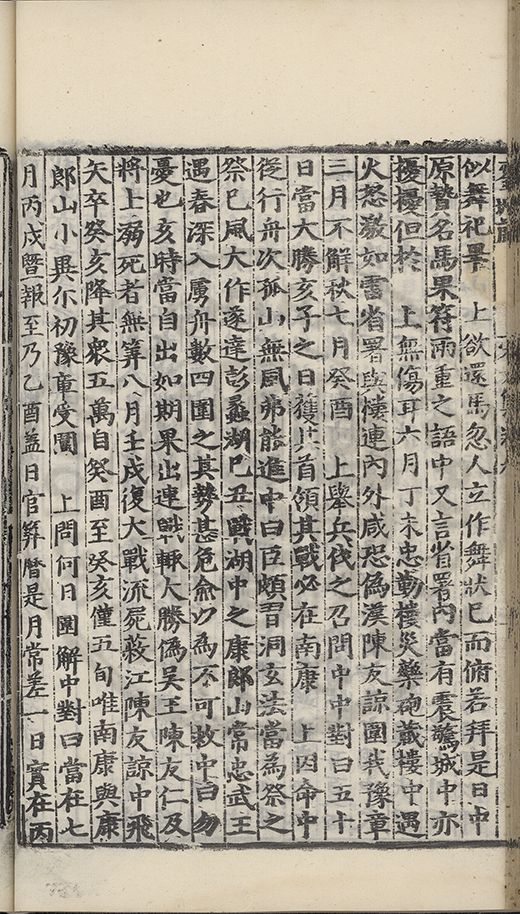 似舞祀畢　上欲還馬忽人立作舞狀已而俯若拜是日中
原贄名馬果符兩重之語中又言省署內當有震驚城中亦
擾擾但於　上無傷耳六月丁未忠勤樓災藥砲藏樓中遇
火怒激如雷省署與樓連內外咸恐偽漢陳友諒圍我豫章
三月不解秋七月癸酉　上舉兵伐之召問中中對曰五十
日當大勝亥子之日獲其首領其戰必在南康　上因命中
從行舟次孤山無風弗能進中曰臣頗習洞玄法當為祭之
祭已風大作遂達彭蠡湖已丑戰湖中之康郎山常忠武王
遇春深入虜舟數四圍之其勢甚危僉以為不可救中曰勿
憂也亥時當自出如期果出連戰輒大勝偽吳王陳友仁及
將上溺死者無筭八月壬戌復大戰流屍蔽江陳友諒中飛
矢卒癸亥降其衆五萬自癸酉至癸亥僅五旬唯南康與康
郎山小異尒初豫章受圍　上問何日圍解中對曰當在七
月丙戌曁報至乃乙酉盖日官筭曆是月常差一日實在丙